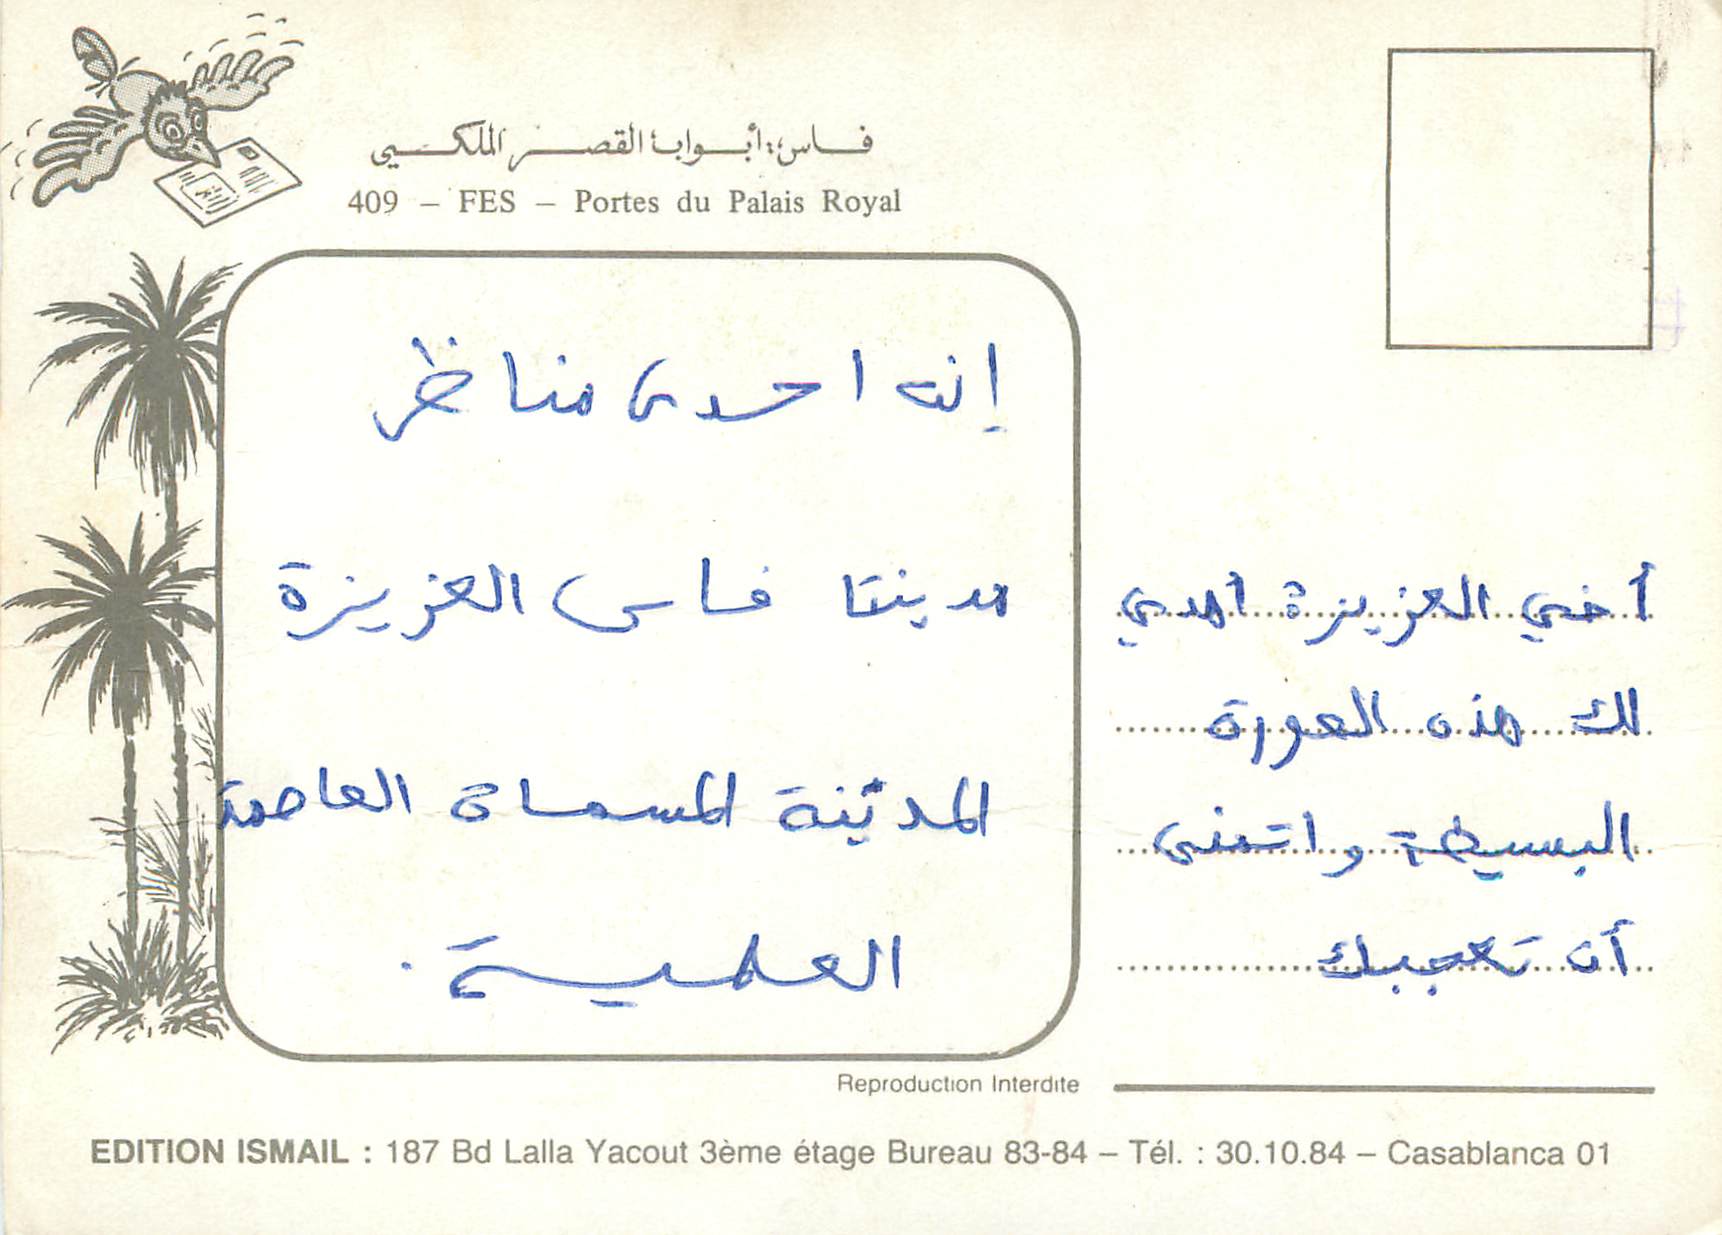 فاس: أبواب القصر الملكي
409 – FES – Portes du Palais Royal
أختي العزيزة اهدي
لك هذه الصورة
البسيطة واتمنى
أن تعجبك
إنه احدى مناظر
مدينتا فاس العزيزة
المدينة المسماة العاصمة
العلمية.
Reproduction Interdite
EDITION ISMAIL : 187 Bd Lalla Yacout 3ème étage Bureau 83-84 – Tél. : 30.10.84 – Casablanca 01